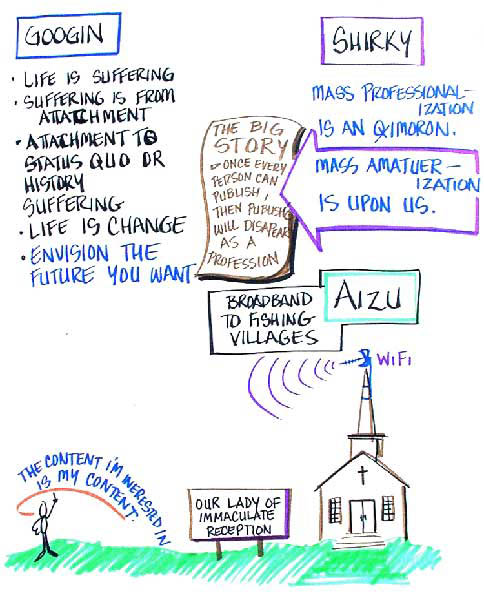 GOOGIN
• LIFE IS SUFFERING
• SUFFERING IS FROM
ATTATCHMENT
• ATTATCHMENT TO
STATUS QUO OR
HISTORY
SUFFERING
• LIFE IS CHANGE
• ENVISION THE
FUTURE YOU WANT
THE BIG
STORY
ONCE EVERY
PERSON CAN
PUBLISH,
THEN PUBLISHG
WILL DISAPEAR
AS A
PROFESSION
SHIRKY
MASS PROFESSIONAL-
IZATION
IS AN OXIMORON.
MASS AMATUER-
IZATION
IS UPON US.
AIZU
BROADBAND
TO FISHING
VILLAGES
WIFI
THE CONTENT I'M INTERESTED IN
IS MY CONTENT.
OUR LADY OF
IMMACULATE
RECEPTION